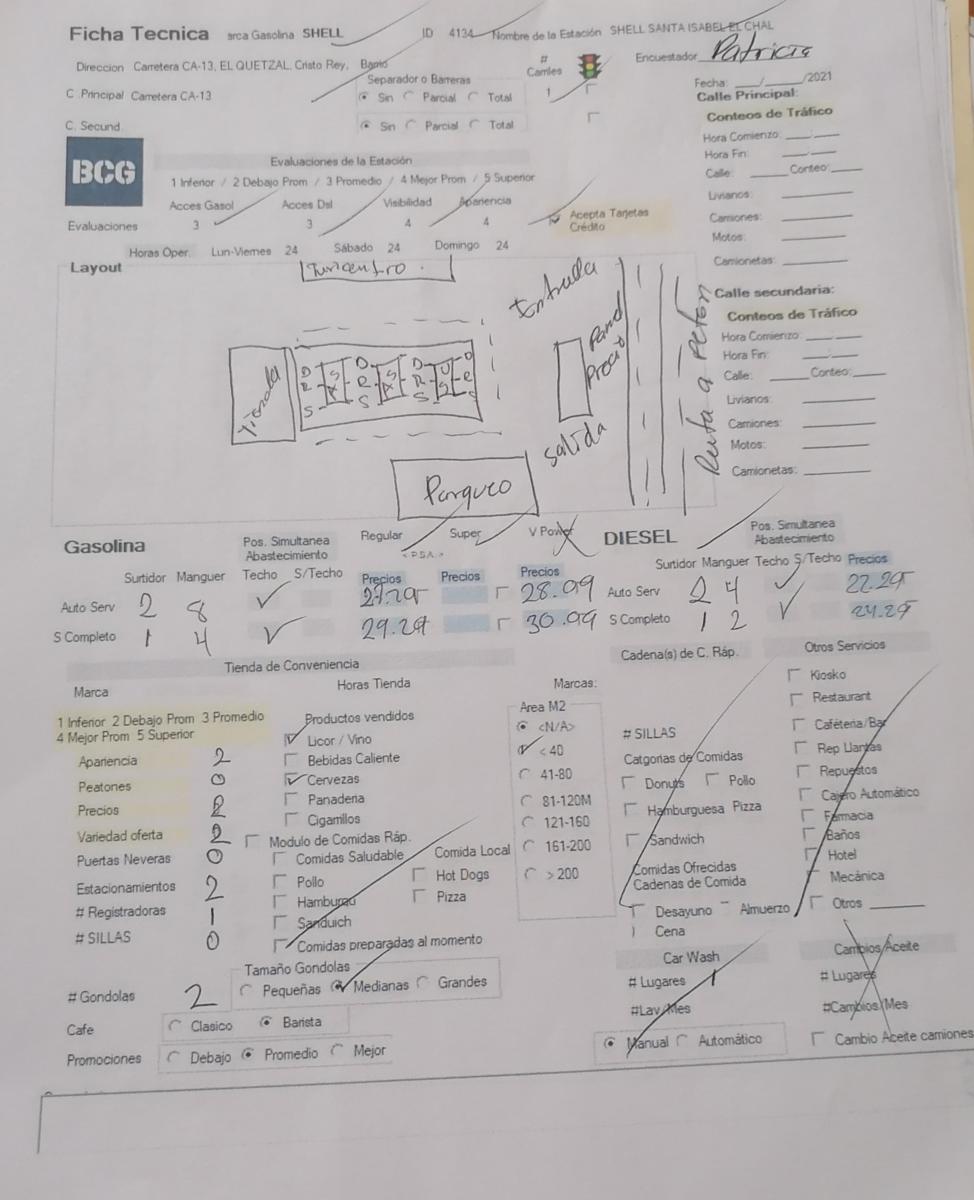 Ficha Tecnica arca Gasolina SHELL ID 4134 Nombre de la Estación SHELL SANTA ISABEL EL CHAL
Direccion Carretera CA-13, EL QUETZAL, Cristo Rey, Barrio # Carriles Encuestador Patricia
Separador o Barreras
C .Principal Carretera CA-13 Sin Parcial Total 1 Fecha: ___/___/2021
Calle Principal:
C. Secund. Sin Parcial Total Conteos de Tráfico
Hora Comienzo: ___:___
BCG Evaluaciones de la Estación Hora Fin: ___:___
1 Inferior / 2 Debajo Prom / 3 Promedio / 4 Mejor Prom / 5 Superior Calle: ___ Conteo: ___
Acces Gasol Acces Dsl Visibilidad Apariencia Livianos:
Evaluaciones 3 3 4 4 Acepta Tarjetas Crédito Camiones:
Motos:
Horas Oper. Lun-Viernes 24 Sábado 24 Domingo 24 Camionetas:
Layout
Turicentro.
Entrada
Calle secundaria:
Conteos de Tráfico
Hora Comienzo: ___:___
Hora Fin: ___:___
Calle: ___ Conteo: ___
Livianos:
Camiones:
Motos:
Camionetas:
Tienda
D R S
D R S
D R S
salida
Ruta a Peten
Parqueo
Gasolina Pos. Simultanea Abastecimiento Regular Super V Power DIESEL Pos. Simultanea Abastecimiento
< P.S.A. >
Surtidor Manguer Techo S/Techo Precios Precios Precios Surtidor Manguer Techo S/Techo Precios
Auto Serv 2 8 27.29 28.09 Auto Serv 2 4 22.29
S Completo 1 4 29.29 30.99 S Completo 1 2 24.29
Tienda de Conveniencia Cadena(s) de C. Ráp. Otros Servicios
Marca Horas Tienda Marcas: Kiosko
1 Inferior 2 Debajo Prom 3 Promedio Productos vendidos Area M2 Restaurant
4 Mejor Prom 5 Superior Licor / Vino <N/A> # SILLAS Cafeteria/Bar
Apariencia 2 Bebidas Caliente < 40 Catgorias de Comidas Rep Llantas
Peatones 0 Cervezas 41-80 Donuts Pollo Repuestos
Precios 2 Panaderia 81-120M Hamburguesa Pizza Cajero Automático
Variedad oferta 2 Cigarrillos 121-160 Sandwich Farmacia
Modulo de Comidas Ráp. Baños
Puertas Neveras 0 Comidas Saludable Comida Local 161-200 Comidas Ofrecidas Hotel
Estacionamientos 2 Pollo Hot Dogs > 200 Cadenas de Comida Mecánica
# Registradoras 1 Hamburgu Pizza Desayuno Almuerzo Otros ______
# SILLAS 0 Sanduich Cena
Comidas preparadas al momento Car Wash Cambios/Aceite
Tamaño Gondolas
# Gondolas 2 Pequeñas Medianas Grandes # Lugares 1 # Lugares
Cafe Clasico Barista #Lav/Mes #Cambios/Mes
Promociones Debajo Promedio Mejor Manual Automático Cambio Aceite camiones